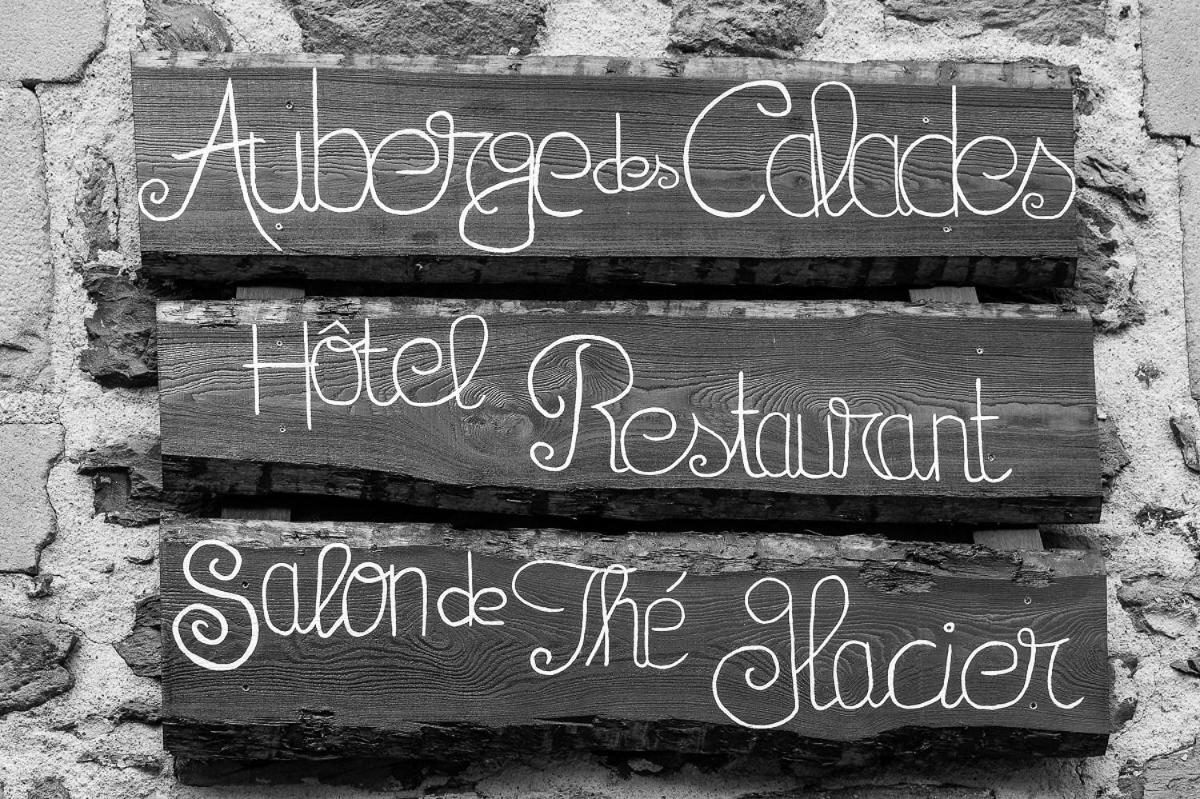 Auberge des Calades
Hôtel Restaurant
Salon de Thé Glacier